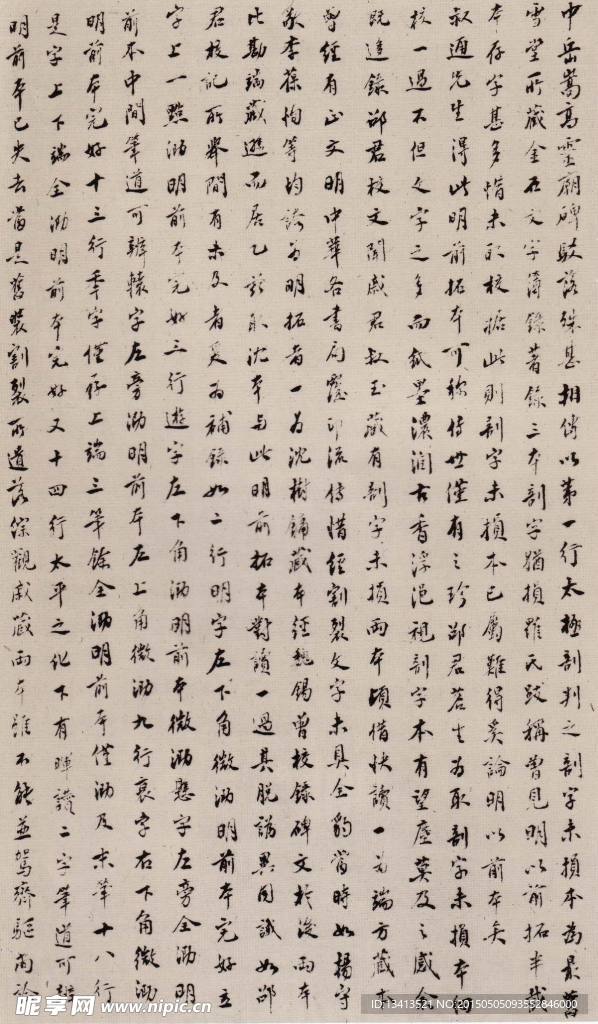 中岳嵩高靈廟碑駁落殊甚相傳以第一行太極剖判之剖字未損本為最舊
雪堂所藏金石文字簿錄著錄三本剖字猶損羅氏跋稱曾見明以前拓半截
本存字甚多惜未取校據此則剖字未損本已屬難得奚論明以前本矣
叔通先生得此明前拓本可稱傳世僅有之珍邵君茗生為取剖字未損本
核一過不但文字之多而紙墨濃潤古香浮浥視剖字本有望塵莫及之感余
既迻錄邵君校文聞戚君叔玉藏有剖字未損兩本頃借快讀一為端方藏本
曾經有正文明中華各書局覆印流傳惜經割裂文字未具全豹當時如楊守
敬李葆恂等均誇為明拓者一為沈樹鏞藏本經魏錫曾校錄碑文於後兩本
比勘端藏遜而居乙茲取沈本與此明前拓本對讀一過其脫譌異同識如邵
君校記所舉間有未及者爰為補錄如二行明字左下角微泐明前本完好五
字上一點泐明前本完好三行遊字左下角泐明前本微泐懸字左旁全泐明
前本中間筆道可辨轅字左旁泐明前本左上角微泐九行衰字右下角微泐
明前本完好十三行季字僅存上端三筆餘全泐明前本僅泐及末筆十八行
是字上下端全泐明前本完好又十四行太平之化下有暉讚二字筆道可辨
明前本已失去當是舊裝割裂所遺落綜觀戚藏兩本雖不能並駕齊驅尚論
昵享网 www.nipic.cn
ID:13413521 NO:20150505093552646000